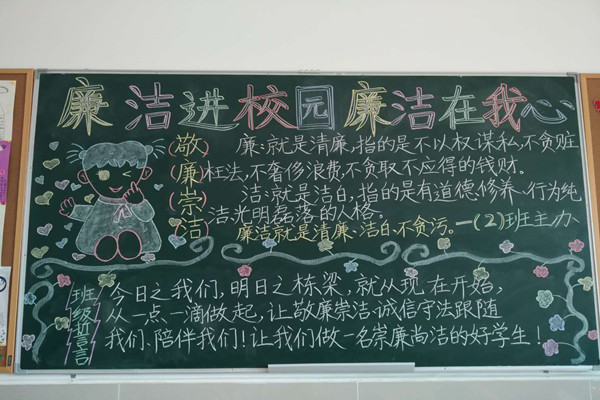 廉洁进校园 廉洁在我心
(敬)
(廉)
(崇)
(洁)
廉:就是清廉,指的是不以权谋私,不贪赃
枉法,不奢侈浪费,不贪取不应得的钱财。
洁:就是洁白,指的是有道德、修养、行为纯
洁,光明磊落的人格。
廉洁就是清廉、洁白,不贪污。一(2)班主办
班级誓言
今日之我们,明日之栋梁,就从现在开始,
从一点一滴做起,让敬廉崇洁、诚信守法跟随
我们、陪伴我们!让我们做一名崇廉尚洁的好学生!